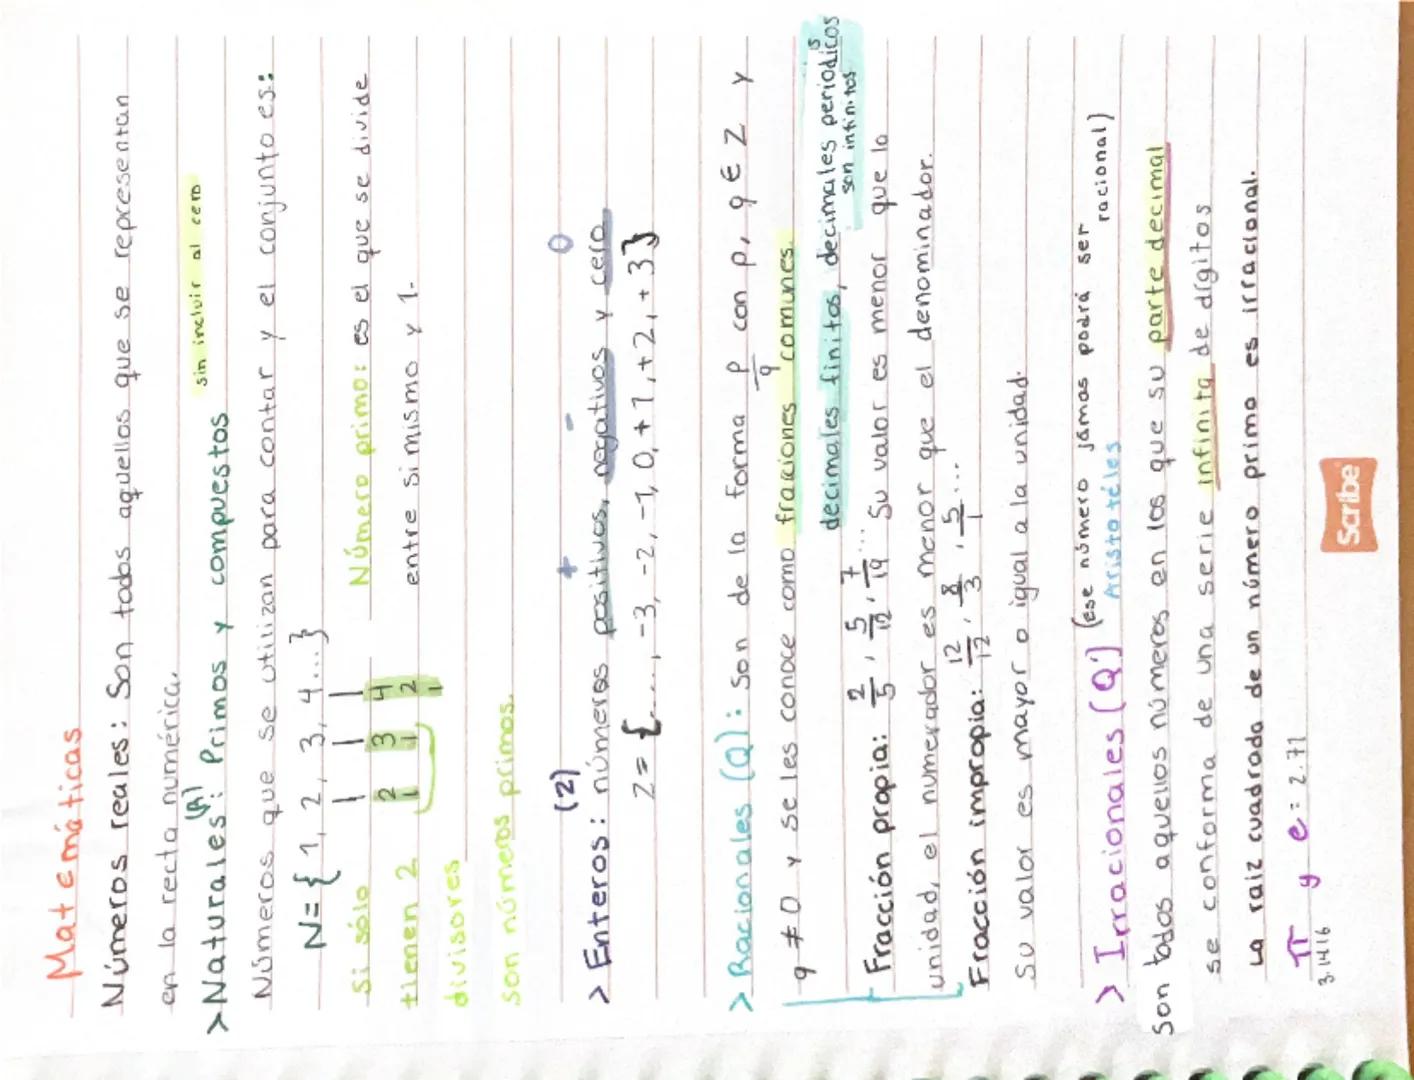 Matemáticas
Números reales: Son todos aquellos que se representan
en la recta numérica.
sin incluir al cero
> Naturales: Primos y compuestos
Números que se utilizan para contar y el conjunto es:
N={1, 2, 3, 4...}
Si sólo 2 3 4 Número primo: es el que se divide
tienen 2 1 1 2 entre si mismo y 1.
1
divisores
son números primos.
(Z) + - 0
> Enteros: números positivos, negativos y cero
Z={...,-3,-2,-1,0,+1,+2,+3}
> Racionales (Q): Son de la forma p/q con p, q ∈ Z y
q ≠ 0 y se les conoce como fraciones comunes.
decimales finitos, decimales periodicos
son infinitos
Fracción propia: 2/5, 5/12, 7/19... Su valor es menor que la
unidad, el numerador es menor que el denominador.
Fracción impropia: 12/12, 8/3, 5/1...
Su valor es mayor o igual a la unidad.
> Irracionales (Q') (ese número jámas podrá ser
racional)
Aristóteles
Son todos aquellos números en los que su parte decimal
se conforma de una serie infinita de dígitos
La raiz cuadrada de un número primo es irracional.
π y e = 2.71
3.1416
Scribe